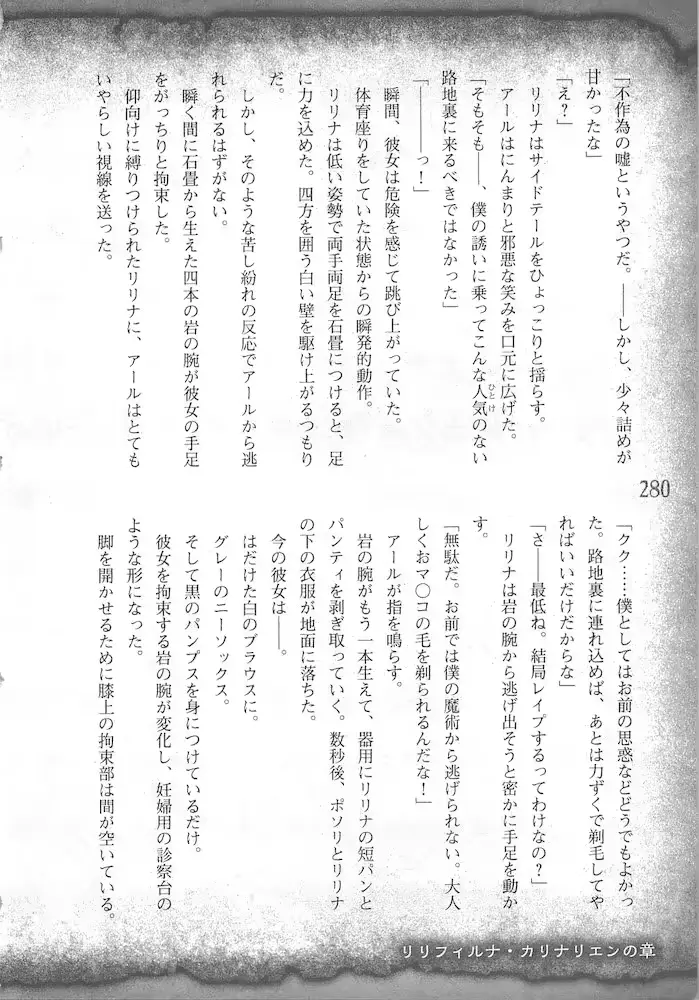 「不作為の嘘というやつだ。――しかし、少々詰めが
甘かったな」
「え？」
リリナはサイドテールをひょっこりと揺らす。
アールはにんまりと邪悪な笑みを口元に広げた。
「そもそも――、僕の誘いに乗ってこんな人気のない
ひとけ
路地裏に来るべきではなかった」
「―――っ！」
瞬間、彼女は危険を感じて跳び上がっていた。
体育座りをしていた状態からの瞬発的動作。
リリナは低い姿勢で両手両足を石畳につけると、足
に力を込めた。四方を囲う白い壁を駆け上がるつもり
だ。
しかし、そのような苦し紛れの反応でアールから逃
れられるはずがない。
瞬く間に石畳から生えた四本の岩の腕が彼女の手足
をがっちりと拘束した。
仰向けに縛りつけられたリリナに、アールはとても
いやらしい視線を送った。
280
「クク……僕としてはお前の思惑などどうでもよかっ
た。路地裏に連れ込めば、あとは力ずくで剃毛してや
ればいいだけだからな」
「さ――最低ね。結局レイプするってわけなの？」
リリナは岩の腕から逃げ出そうと密かに手足を動か
す。
「無駄だ。お前では僕の魔術から逃げられない。大人
しくおマ〇コの毛を剃られるんだな！」
アールが指を鳴らす。
岩の腕がもう一本生えて、器用にリリナの短パンと
パンティを剥ぎ取っていく。数秒後、ポソリとリリナ
の下の衣服が地面に落ちた。
今の彼女は――。
はだけた白のブラウスに。
グレーのニーソックス。
そして黒のパンプスを身につけているだけ。
彼女を拘束する岩の腕が変化し、妊婦用の診察台の
ような形になった。
脚を開かせるために膝上の拘束部は間が空いている。
リリフィルナ・カリナリエンの章